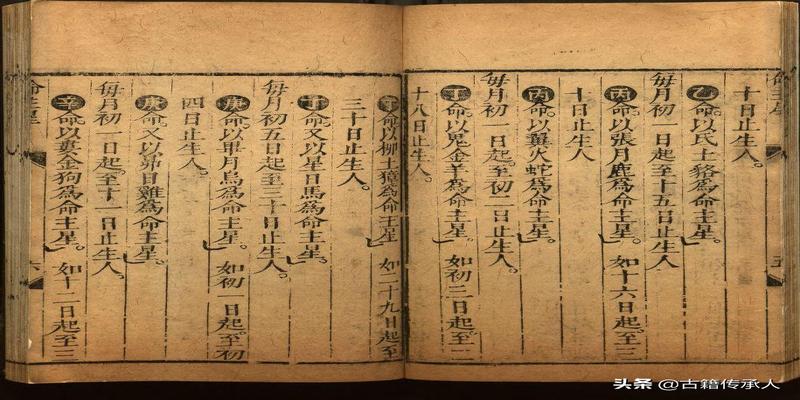 十日止生人。
乙命以氐土貉為命主星。
每月初一日起至十五日止生人
丙命以張月鹿為命主星。如十六日起至三
十日止生人
丙命以翼火蛇為命主星。
每月初一日起至初二日止生人。
丁命以鬼金羊為命主星。如初三日起至二
十八日止生人。
命以柳土獐為命主星 如二十九日起至
三十日止生人。
命又以星日馬為命主星。
每月初五日起至三十日止生人。
庚命以畢月烏為命主星。如初一日起至初
四日止生人。
庚命又以昴日雞為命主星。
每月初一日起至十一日止生人。
辛命以婁金狗為命主星。如十二日起至三
命主星 六
头条 @古籍传承人